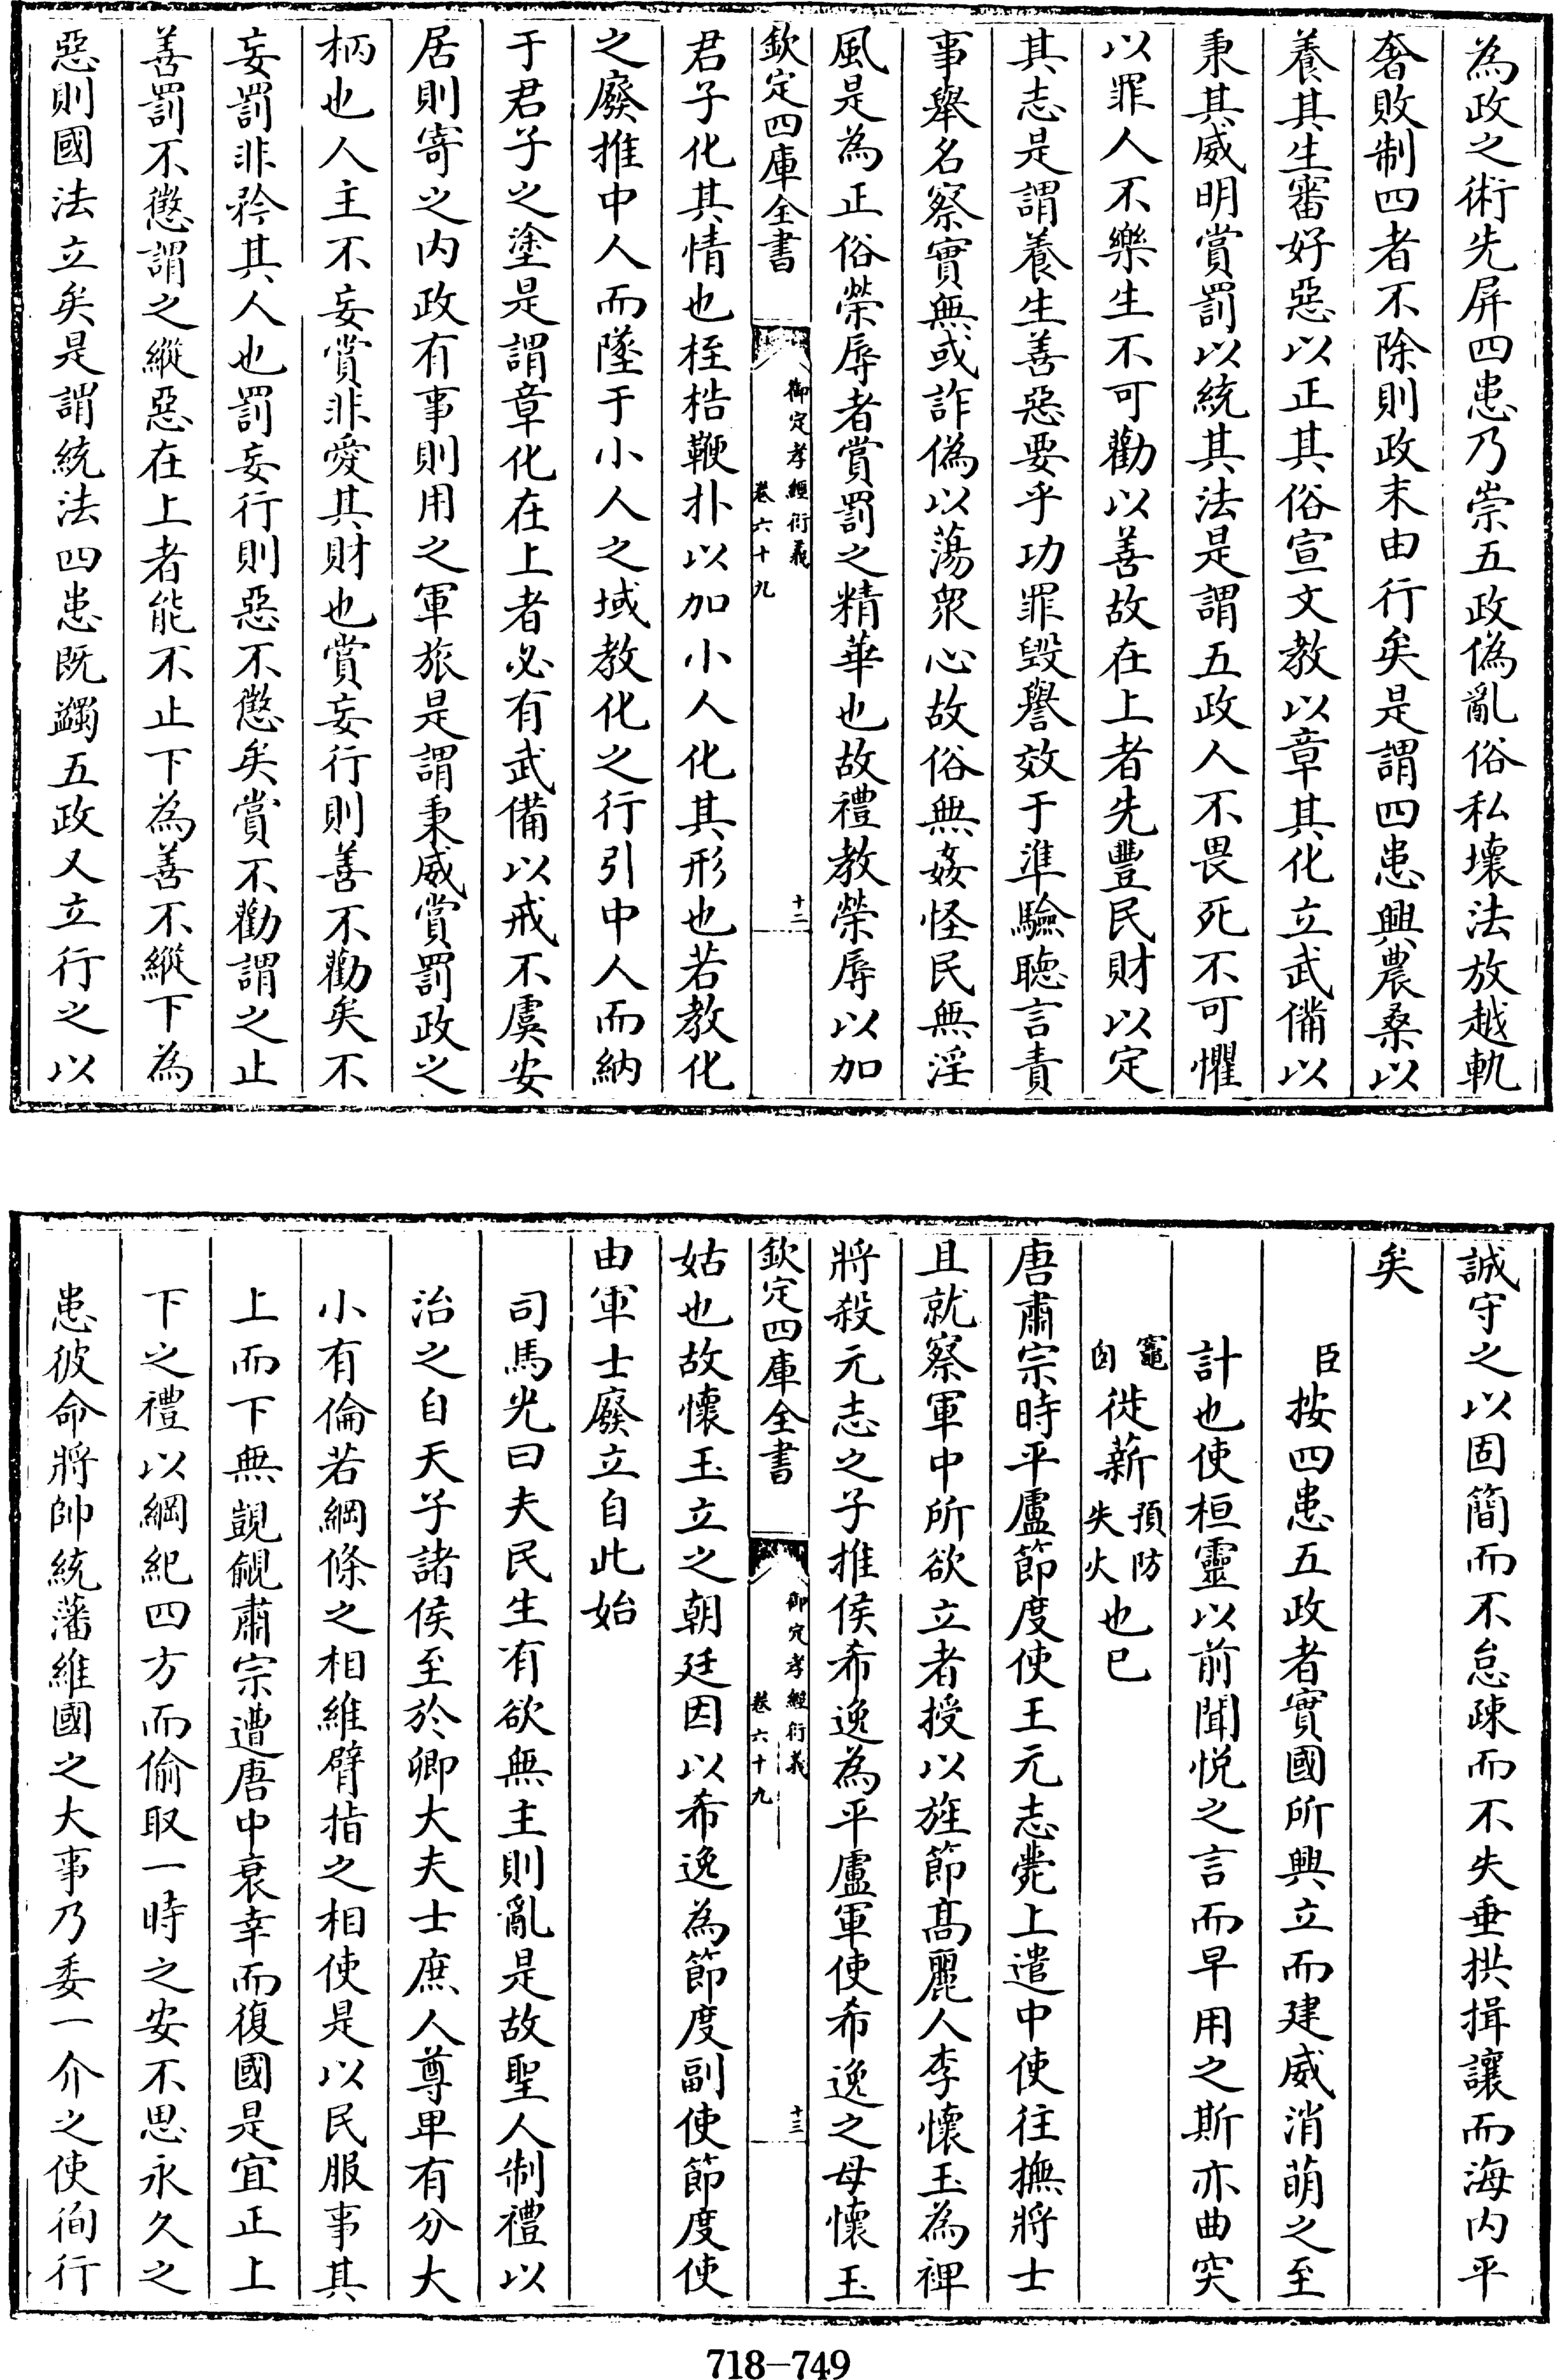 為政之術先屏四患乃崇五政偽亂俗私壞法放越軌
奢敗制四者不除則政末由行矣是謂四患興農桑以
養其生審好惡以正其俗宣文教以章其化立武備以
秉其威明賞罰以統其法是謂五政人不畏死不可懼
以罪人不樂生不可勸以善故在上者先豐民財以定
其志是謂養生善惡要乎功罪毀譽效于準驗聽言責
事舉名察實無或詐偽以蕩衆心故俗無姦怪民無淫
風是為正俗榮辱者賞罰之精華也故禮教榮辱以加
欽定四庫全書
御定孝經衍義
卷六十九
十二
君子化其情也桎梏鞭扑以加小人化其形也若教化
之廢推中人而墜于小人之域教化之行引中人而納
于君子之塗是謂章化在上者必有武備以戒不虞安
居則寄之内政有事則用之軍旅是謂秉威賞罰政之
柄也人主不妄賞非愛其財也賞妄行則善不勸矣不
妄罰非矜其人也罰妄行則惡不懲矣賞不勸謂之止
善罰不懲謂之縱惡在上者能不止下為善不縱下為
惡則國法立矣是謂統法四患既蠲五政又立行之以
誠守之以固簡而不怠疎而不失垂拱揖讓而海内平
矣
臣按四患五政者實國所興立而建威消萌之至
計也使桓靈以前聞悦之言而早用之斯亦曲突
竈囱徙薪預防失火也已
唐肅宗時平盧節度使王元志薨上遣中使往撫將士
且就察軍中所欲立者授以旌節髙麗人李懷玉為裨
將殺元志之子推侯希逸為平盧軍使希逸之母懷玉
欽定四庫全書
御定孝經衍義
卷六十九
十三
姑也故懷玉立之朝廷因以希逸為節度副使節度使
由軍士廢立自此始
司馬光曰夫民生有欲無主則亂是故聖人制禮以
治之自天子諸侯至於卿大夫士庶人尊卑有分大
小有倫若綱條之相維臂指之相使是以民服事其
上而下無覬覦肅宗遭唐中衰幸而復國是宜正上
下之禮以綱紀四方而偷取一時之安不思永久之
患彼命將帥統藩維國之大事乃委一介之使徇行
718—749